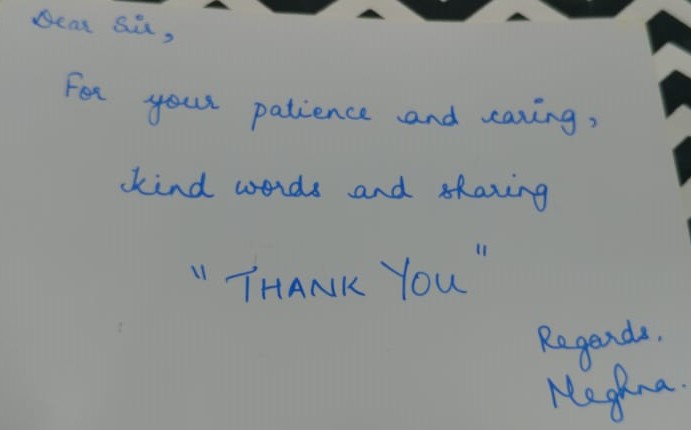 Dear Sir,
For your patience and caring,
kind words and sharing
"THANK YOU"
Regards.
Meghna.